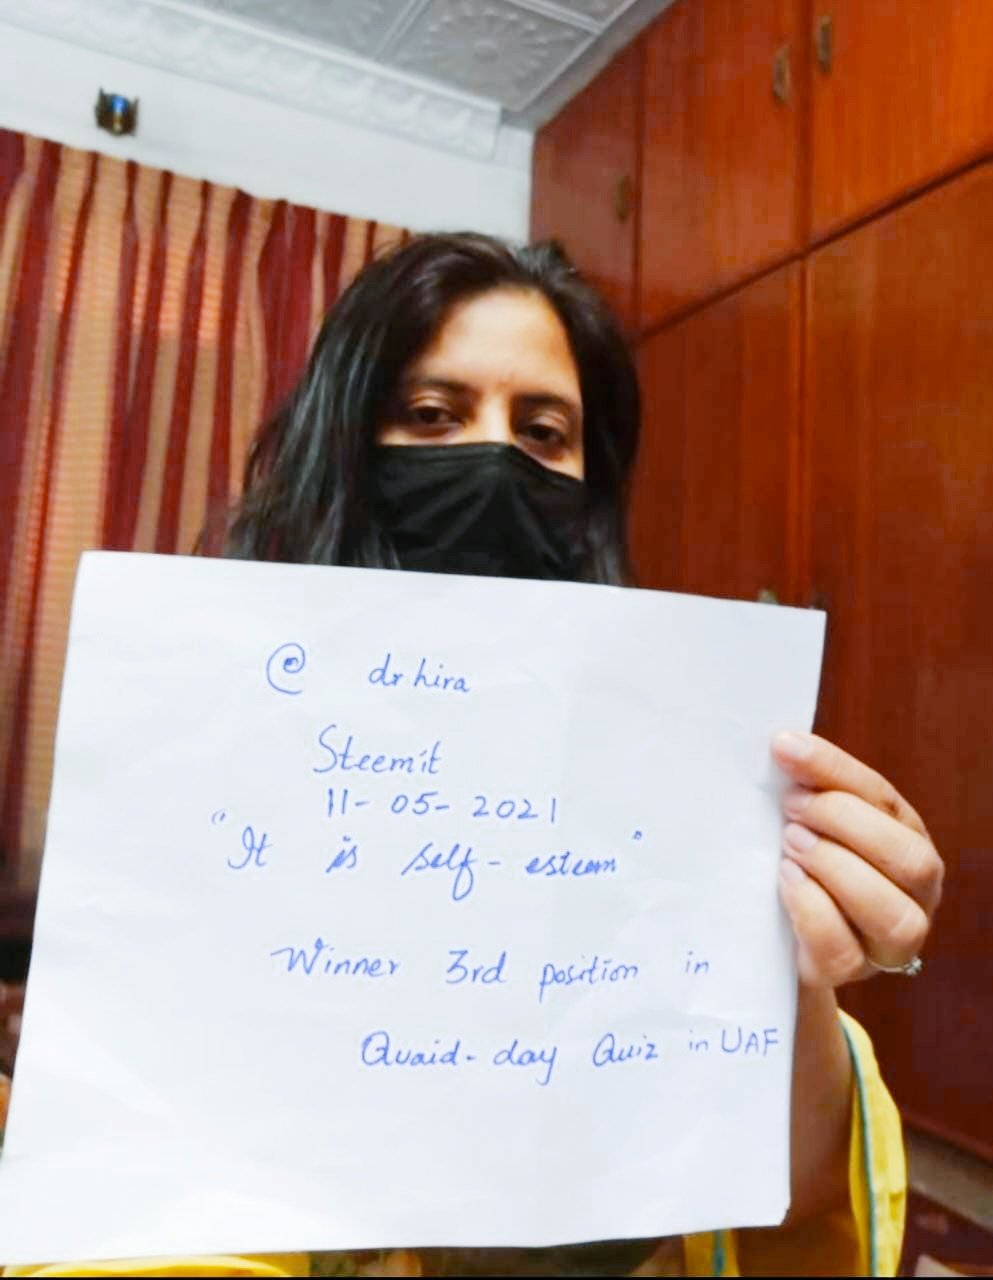 @ dr hira
Steemit
11-05-2021
"It is self-esteem"
Winner 3rd position in
Quaid-day Quiz in UAF